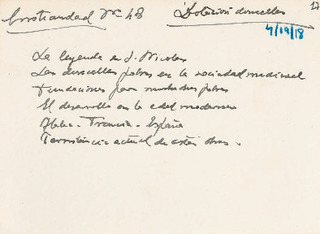 Cristiandad nº 48
Dotación doncellas
17
4/19/18
La leyenda en S. Nicolas
Las doncellas pobres en la sociedad medieval
Fundaciones para muchachas pobres
El desarrollo en la edad moderna
Italia - Francia - España
Persistencia actual de estas obras -